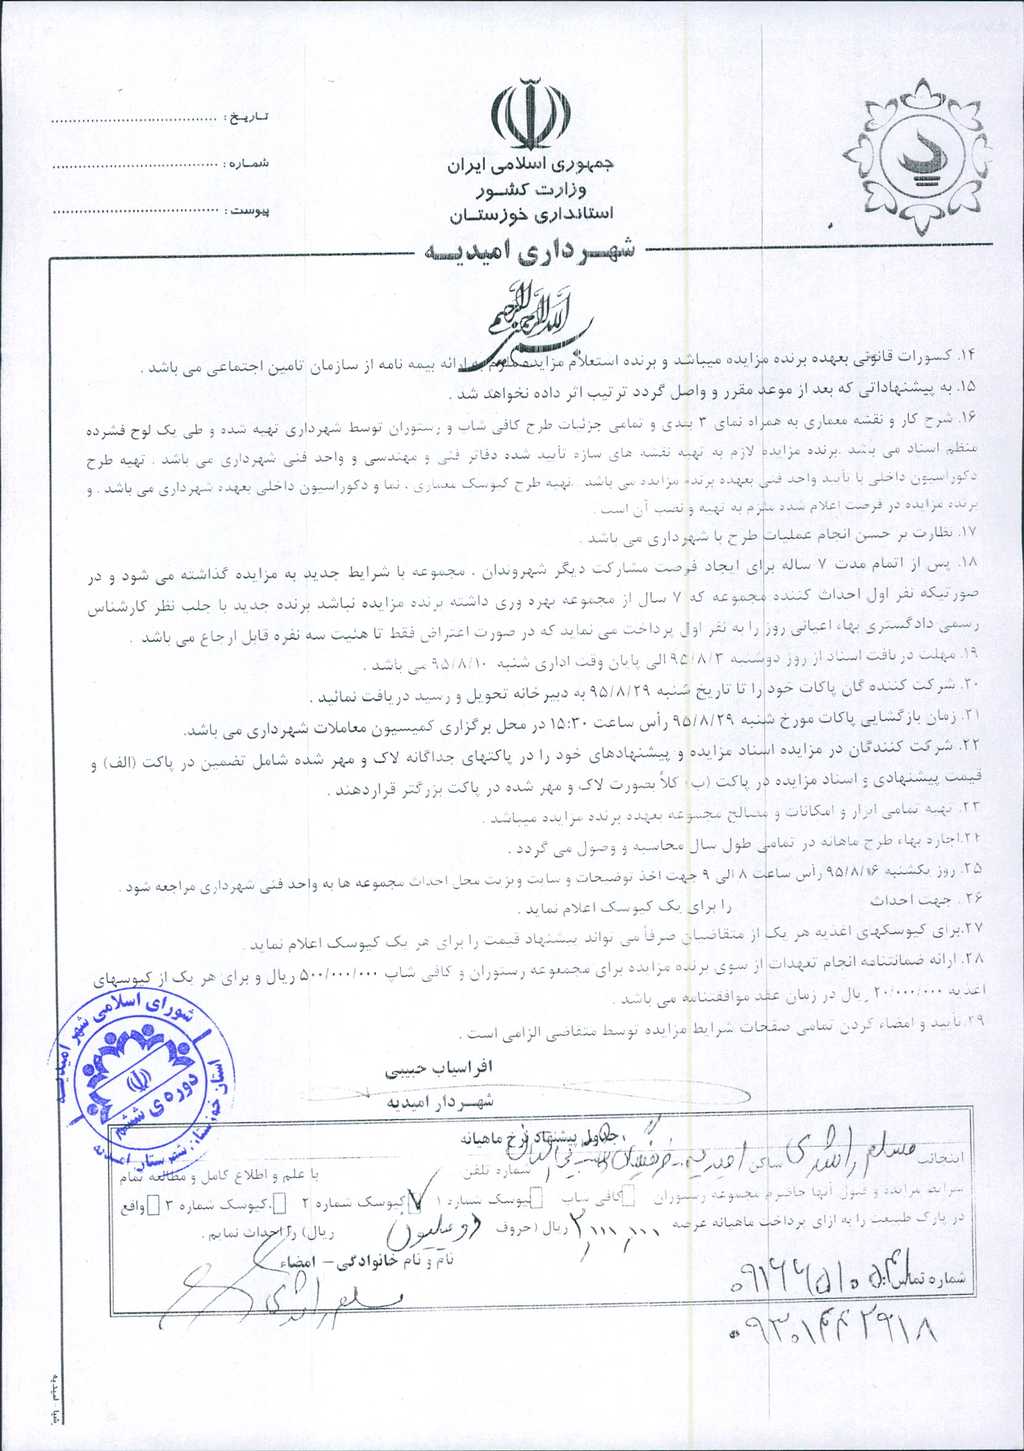 تاریخ :
شماره :
پیوست :
جمهوری اسلامی ایران
وزارت کشور
استانداری خوزستان
شهرداری امیدیه
۱۴. کسورات قانونی بعهده برنده مزایده میباشد و برنده استعلام مزایده ملزم به ارائه بیمه نامه از سازمان تامین اجتماعی می باشد .
۱۵. به پیشنهاداتی که بعد از موعد مقرر و واصل گردد ترتیب اثر داده نخواهد شد .
۱۶. شرح کار و نقشه معماری به همراه نمای ۳ بعدی و تمامی جزئیات طرح کافی شاپ و رستوران توسط شهرداری تهیه شده و طی یک لوح فشرده
منظم اسناد می باشد .برنده مزایده لازم به تهیه نقشه های سازه تأیید شده دفاتر فنی و مهندسی و واحد فنی شهرداری می باشد . تهیه طرح
دکوراسیون داخلی با تأیید واحد فنی بعهده برنده مزایده می باشد .تهیه طرح کیوسک معماری ، نما و دکوراسیون داخلی بعهده شهرداری می باشد . و
برنده مزایده در فرصت اعلام شده ملزم به تهیه و نصب آن است .
۱۷. نظارت بر حسن انجام عملیات طرح با شهرداری می باشد .
۱۸. پس از اتمام مدت ۷ ساله برای ایجاد فرصت مشارکت دیگر شهروندان ، مجموعه با شرایط جدید به مزایده گذاشته می شود و در
صورتیکه نفر اول احداث کننده مجموعه که ۷ سال از مجموعه بهره وری داشته برنده مزایده نباشد برنده جدید با جلب نظر کارشناس
رسمی دادگستری بهاء اعیانی روز را به نفر اول پرداخت می نماید که در صورت اعتراض فقط تا هئیت سه نفره قابل ارجاع می باشد .
۱۹. مهلت دریافت اسناد از روز دوشنبه ۹۵/۸/۳ الی پایان وقت اداری شنبه ۹۵/۸/۱۰ می باشد .
۲۰. شرکت کننده گان پاکات خود را تا تاریخ شنبه ۹۵/۸/۲۹ به دبیرخانه تحویل و رسید دریافت نمائید .
۲۱. زمان بازگشایی پاکات مورخ شنبه ۹۵/۸/۲۹ رأس ساعت ۱۵:۳۰ در محل برگزاری کمیسیون معاملات شهرداری می باشد.
۲۲. شرکت کنندگان در مزایده اسناد مزایده و پیشنهادهای خود را در پاکتهای جداگانه لاک و مهر شده شامل تضمین در پاکت (الف) و
قیمت پیشنهادی و اسناد مزایده در پاکت (ب) کلاً بصورت لاک و مهر شده در پاکت بزرگتر قراردهند .
۲۳. تهیه تمامی ابزار و امکانات و مصالح مجموعه بعهده برنده مزایده میباشد .
۲۴.اجاره بهاء طرح ماهانه در تمامی طول سال محاسبه و وصول می گردد .
۲۵. روز یکشنبه ۹۵/۸/۱۶ رأس ساعت ۸ الی ۹ جهت اخذ توضیحات و سایت ویزیت محل احداث مجموعه ها به واحد فنی شهرداری مراجعه شود .
۲۶ . جهت احداث را برای یک کیوسک اعلام نماید .
۲۷.برای کیوسکهای اغذیه هر یک از متقاضیان صرفاً می تواند پیشنهاد قیمت را برای هر یک کیوسک اعلام نماید .
۲۸. ارائه ضمانتنامه انجام تعهدات از سوی برنده مزایده برای مجموعه رستوران و کافی شاپ ۵۰۰/۰۰۰/۰۰۰ ریال و برای هر یک از کیوسهای
اغذیه ۲۰/۰۰۰/۰۰۰ ریال در زمان عقد موافقتنامه می باشد .
۲۹.تأیید و امضاء کردن تمامی صفحات شرایط مزایده توسط متقاضی الزامی است .
شورای اسلامی شهر امیدیه
استان خوزستان شهرستان امیدیه
دوره ی ششم
افراسیاب حبیبی
شهردار امیدیه
جدول پیشنهاد نرخ ماهیانه
اینجانب مسلم راشدی ساکن امیدیه شماره تلفن با علم و اطلاع کامل و مطالعه تمام
شرایط مزایده و قبول آنها حاضرم مجموعه رستوران کافی شاپ کیوسک شماره ۱ کیوسک شماره ۲ کیوسک شماره ۳ واقع
در پارک طبیعت را به ازای پرداخت ماهیانه عرصه ۲,۰۰۰,۰۰۰ ریال (حروف دو میلیون ریال) را احداث نمایم .
نام و نام خانوادگی – امضاء
مسلم راشدی
شماره تماس
۰۹۳۰۱۴۴۲۹۱۸